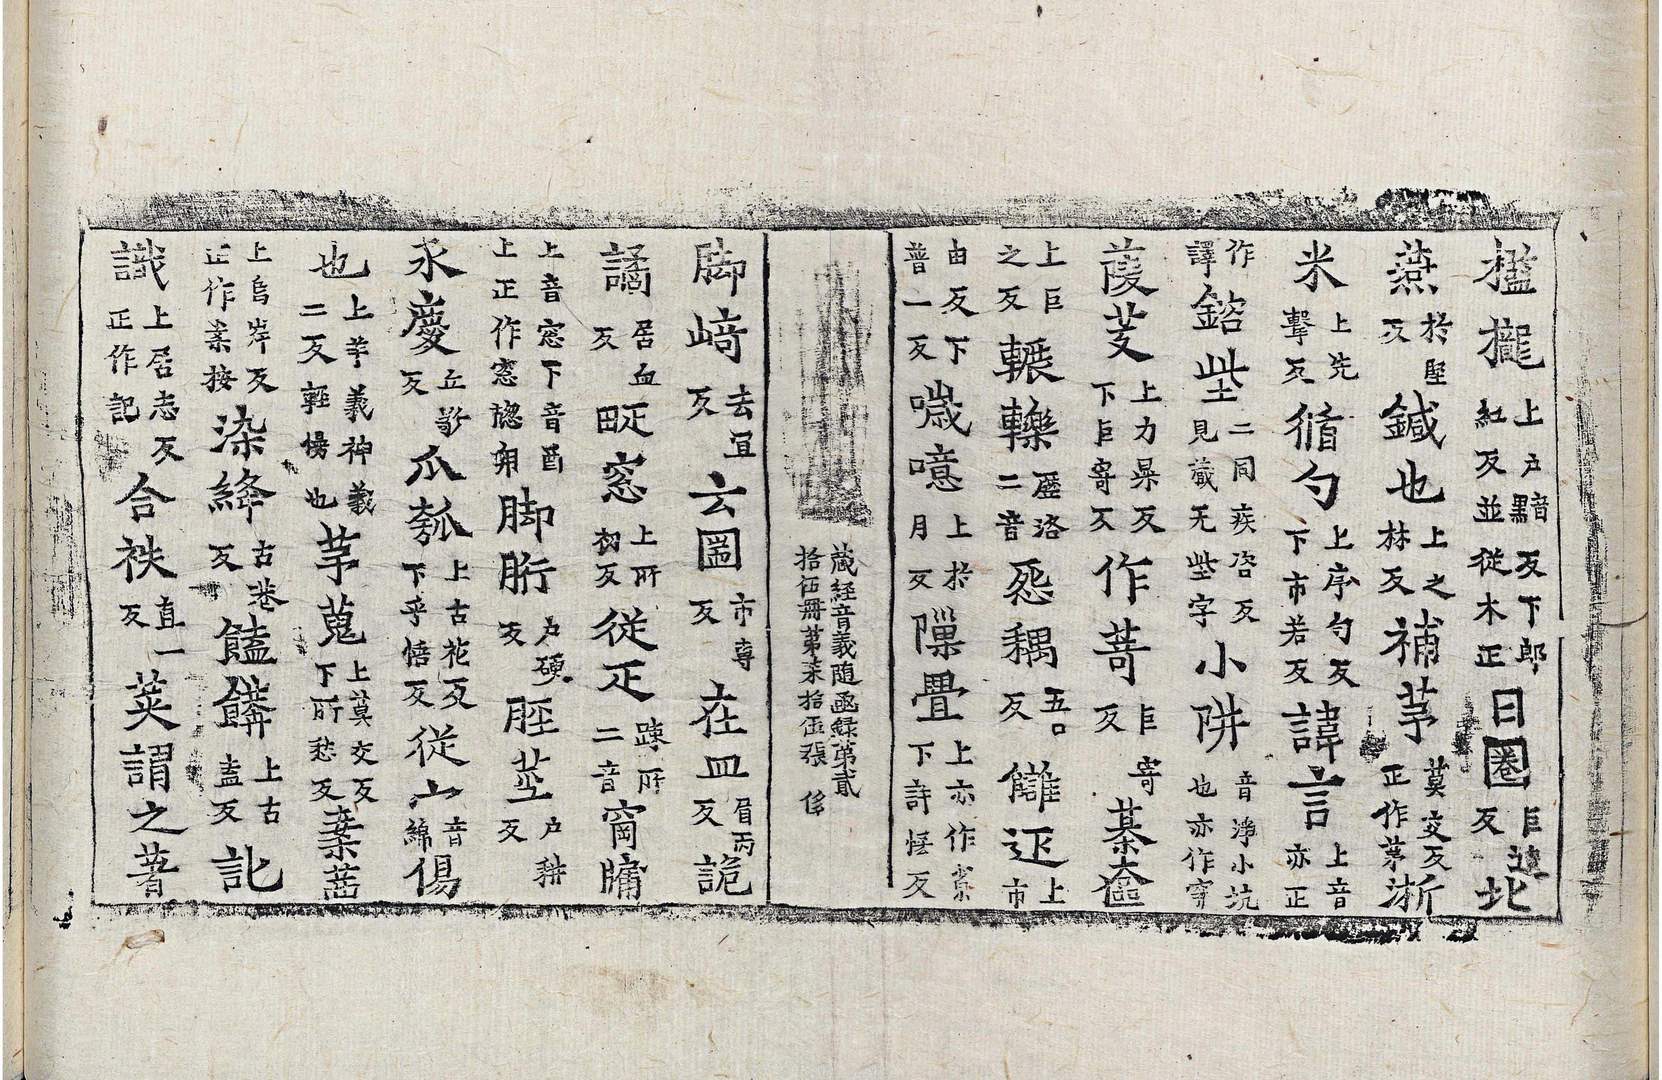 㯺攏上戶黯反下郎紅反並從木正曰圈巨遠反北
燕於堅反鍼也上之林反補茅莫交反正作茅淅
米上先擊反循勺上序勻反下市若反諱言上音亦正
作譯鎝㘹二同疾咨反見藏无㘹字小阱音淨小坑也亦作穽
蔆芰上力杲反下巨寄反作萮巨寄反綦奩
上巨之反䡵轢歷洛二音惌耦五口反讎迊上市
由反下普一反噦噫上於月反隟疊上亦作𡭴下許悟反
藏經音義隨函録第貳拾伍冊第柒拾伍張
脚崎去冝反云圌市專反在皿眉丙反詭
譎居血反䟽窓上所初反從疋踈所二音窗牖
上音窓下音酉上正作窻牕㓨脚胻戶硬反脛莖戶耕反
永慶丘敬反爪瓠上古花反下乎悟反從宀音綿傷
也上羊義神義二反輕慢也茅蒐上莫交反下所愁反棄茜
上烏岸反正作案按染絳古巷反饁饎上古盍反訛
識上居志反正作記合袟直一反䇲謂之著